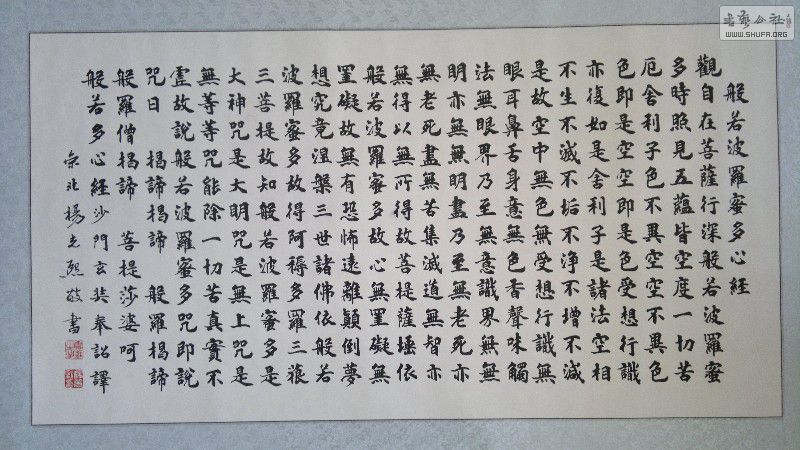 般若波羅蜜多心經
觀自在菩薩行深般若波羅蜜
多時照見五蘊皆空度一切苦
厄舍利子色不異空空不異色
色即是空空即是色受想行識
亦復如是舍利子是諸法空相
不生不滅不垢不淨不增不減
是故空中無色無受想行識無
眼耳鼻舌身意無色香聲味觸
法無眼界乃至無意識界無無
明亦無無明盡乃至無老死亦
無老死盡無苦集滅道無智亦
無得以無所得故菩提薩埵依
般若波羅蜜多故心無罣礙無
罣礙故無有恐怖遠離顛倒夢
想究竟涅槃三世諸佛依般若
波羅蜜多故得阿耨多羅三藐
三菩提故知般若波羅蜜多是
大神咒是大明咒是無上咒是
無等等咒能除一切苦真實不
虛故說般若波羅蜜多咒即說
咒曰 揭諦揭諦 般羅揭諦
般羅僧揭諦 菩提莎婆呵
般若多心經沙門玄奘奉詔譯
京兆楊立熙敬書
书艺公社
WWW.SHUFA.ORG